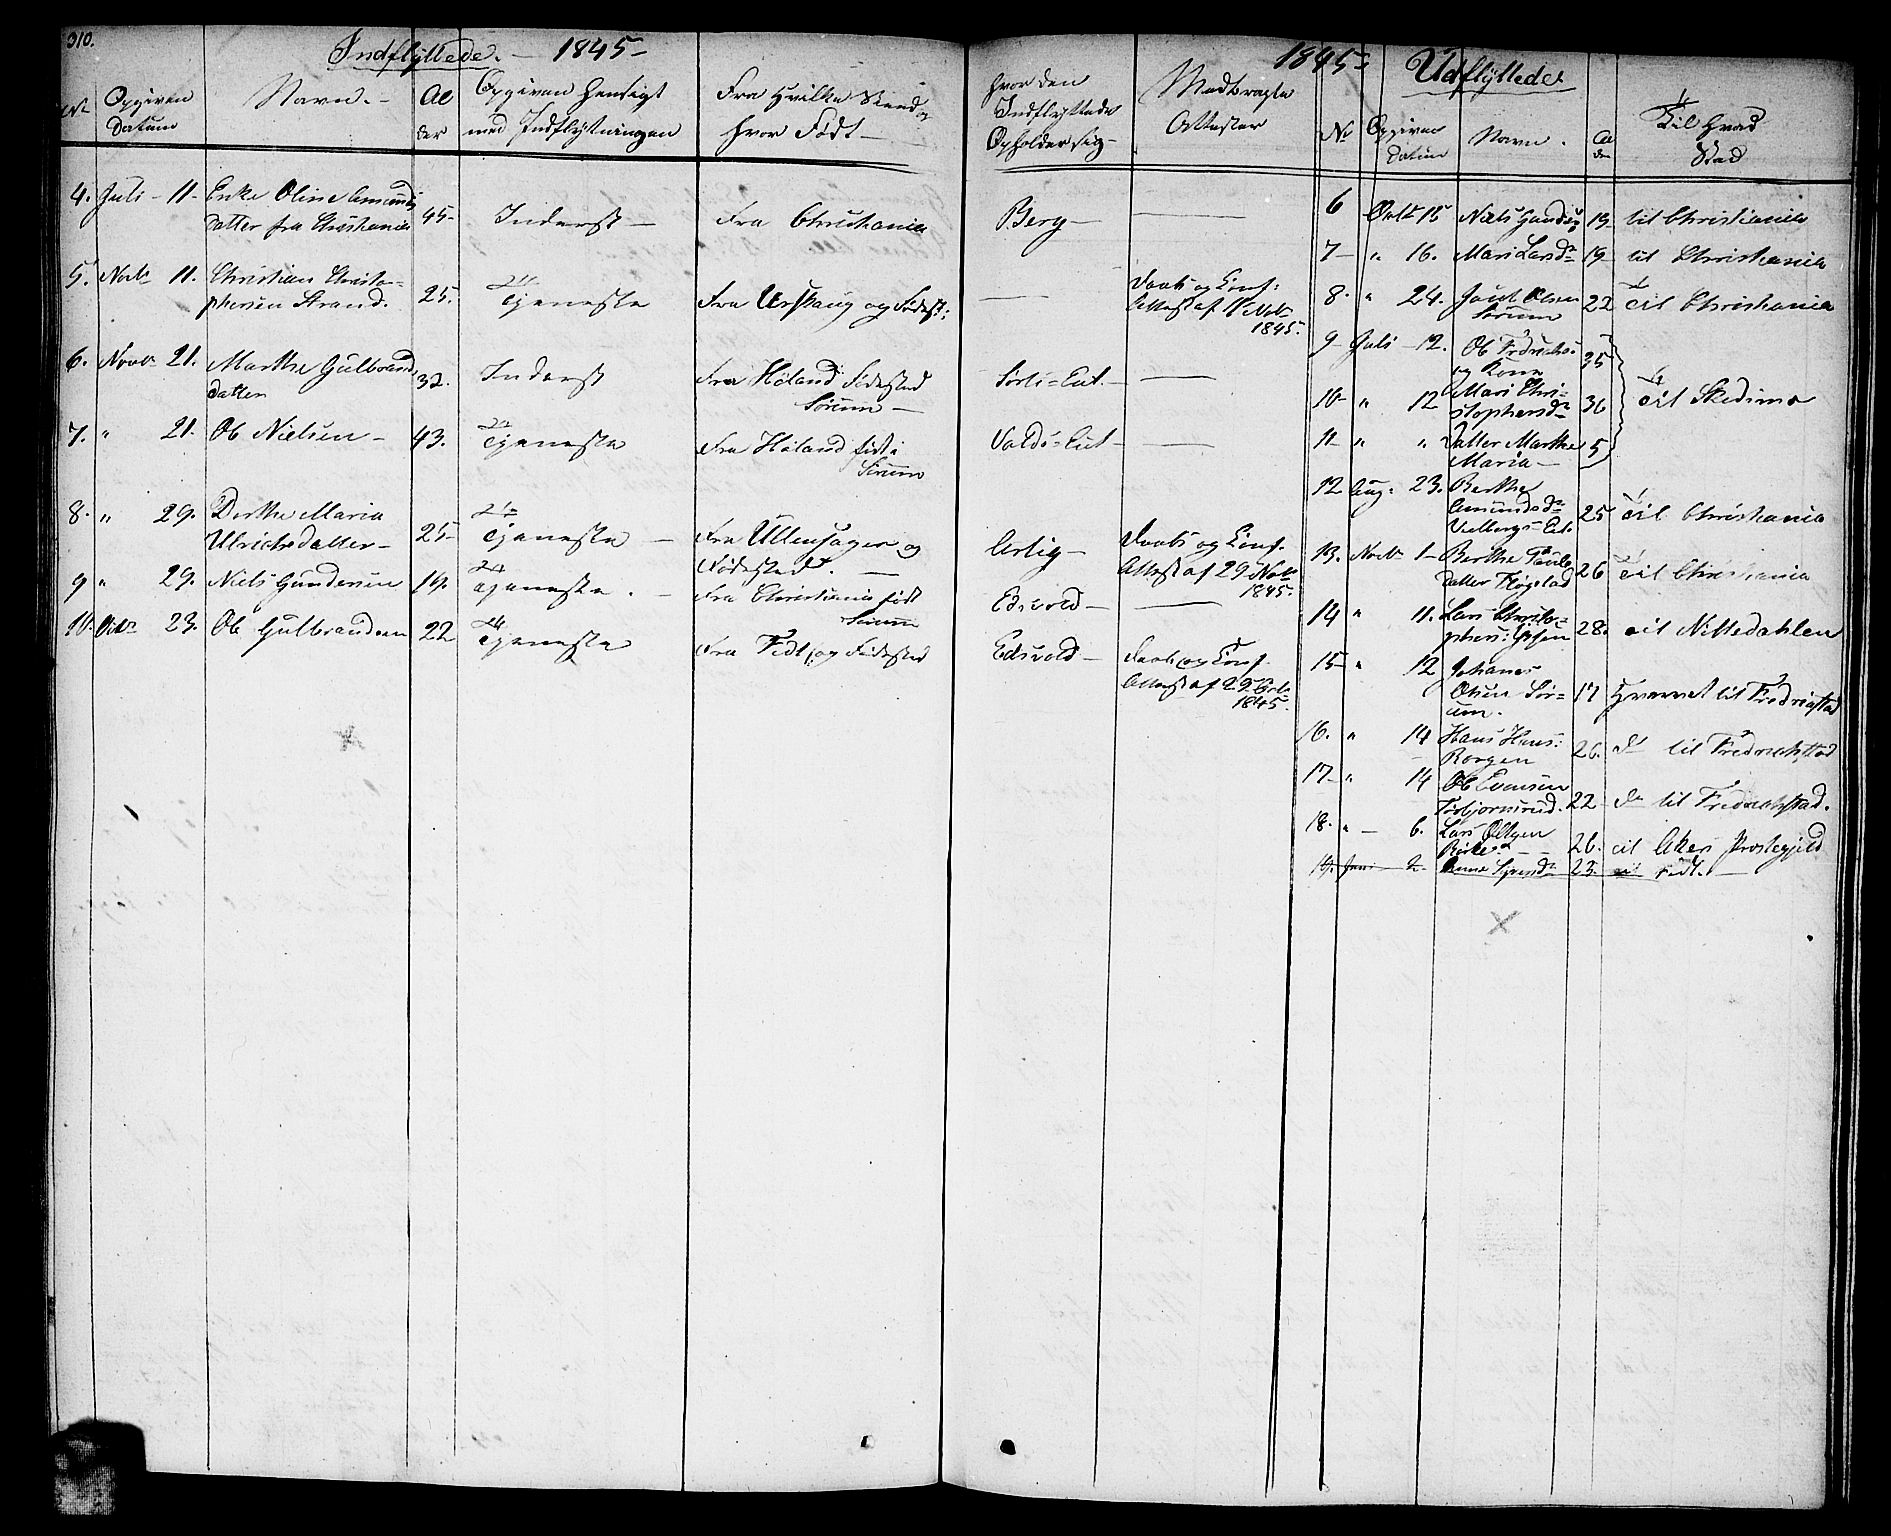 310.
Indflyttede. - 1845-
No
Opgiven
Datum
Navn. -
Al
der
Opgiven Hensigt
med Indflytningen
Fra Hvilke Sted og
hvor Født -
hvor den
Indflyttede
Opholder sig -
Medbragte
Attester
4. Juli - 11- Enke Oline Amunds
datter fra Christiania 45- Inderst - Fra Christiania Berg -
5. Novb 11. Christian Christo=
phersen Strand. 25. Tjeneste Fra Urskaug og Fødest: Daabs og Conf:
Attest af 1 Novb
1845.
6. Novb 21. Marthe Gulbrands
datter 32. Inderst Fra Høland Fødested
Sørum - Sørli=Eut. -
7. " 21. Ole Nielsen - 43. Tjeneste Fra Høland født i
Sørum Valds=Eut -
8. " 29. Dorthe Maria
Ulrichsdatter - 25- Tjeneste - Fra Ullensager og
Fødested. - Asbig - Daabs og Conf.
Attest af 29 Novb
1845.
9 " 29. Niels Gundersen 19. Tjeneste. - Fra Christiania født
Sørum Edsvold -
10. Octbr 23. Ole Gulbrandsen 22 Tjeneste Fra Fedt og Fødested Edsvold - Daabs og Conf.
Attest af 29 Octb
1845.
1845- Udflyttede
No
Opgiven
Datum
Navn.
Al
der
Til Hvad
Stad
6 Octb 15 Niels Gunders 19- til Christiania
7- " 16. Mari Larsdr 19- til Christiania
8. " 24. Jacob Olsen
Sørum 22 Til Christiania
9- Juli - 12. Ole Fredrichs:
og Kone 35
10- " 12 Mari Chri=
stophersdr 36 Til Skedsmo
11- " " Datter Marthe
Maria - 5
12 Aug: 23. Berthe
Amundsdr
Vielbergs=Eie 25 Til Christiania
13. Novb 1- Berthe Pauls
datter Fløgstad 26 Til Christiania
14 " 11. Lars Christo=
phers: 28. til Nittedahlen
15- " 12 Johanes
Olsen Sør=
um. 17 Hvervet til Fredrigstad
16. " 14 Hans Hans:
Borgen 26. do til Fredrichstad
17- " 14 Ole Evensen
Torbjørnsrud. 22 do til Fredrichstad.
18. " - 6. Lars
26. til Akers Prestegjeld
19. Juni 2. Anne 23. til Fedt. -